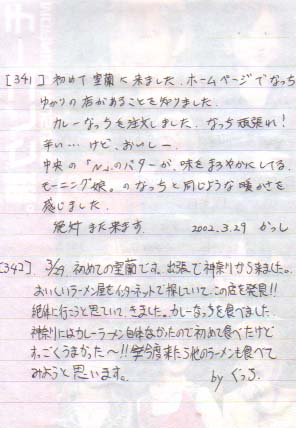 [341] 初めて室蘭に来ました。ホームページでなっち
ゆかりの店があることを知りました。
カレーなっちを注文しました。なっち頑張れ!
辛い…けど、おいしー。
中央の「N」のバターが、味をまろやかにしてる。
モーニング娘。のなっちと同じような暖かさを
感じました。
絶対また来ます。 2002.3.29 かっし
[342] 3/29 初めての室蘭です。出張で神奈川から来ました。
おいしいラーメン屋をインターネットで探していて、この店を発見!!
絶体に行こうと思っていて、きました。カレーなっちを食べました。
神奈川にはカレーラーメン自体なかったので初めて食べたけど
すっごくうまかった〜!!今度来たら他のラーメンも食べて
みようと思います。 by ぐっち